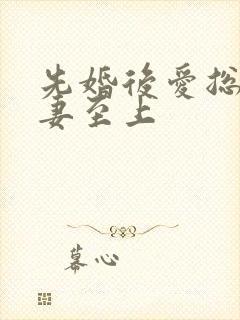 先婚後愛總
妻至上
幕心